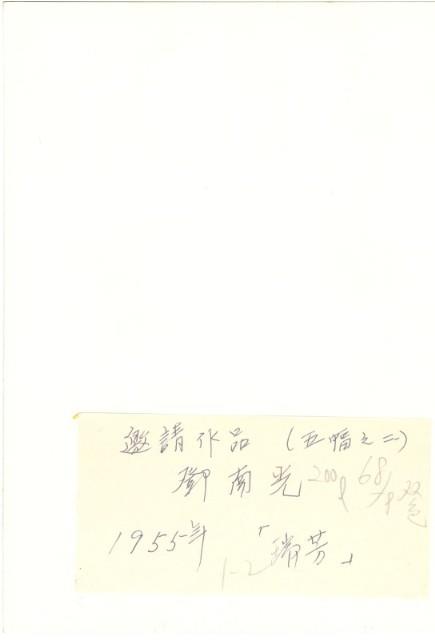 邀請作品 (五幅之二)
鄧南光 200 68/
1955年 「瑞芳」
1-2